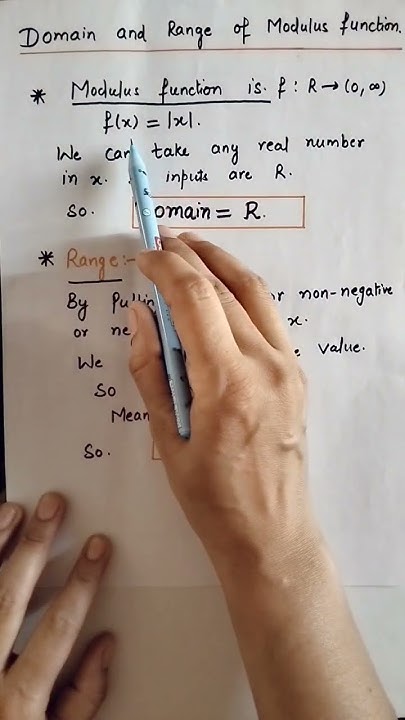 Domain and Range of Modulus function.
* Modulus function is. f : R → (0, ∞)
f(x) = |x|.
We can take any real number
in x. inputs are R.
So. Domain = R.
* Range:-
By or non-negative
or x.
We value.
So
Mean
So.